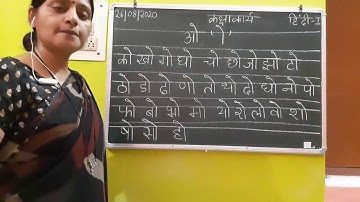 26/08/2020 कक्षाकार्य हिंदी-I
ओ, 'ो'
को खो गो घो चो छो जो झो टो
ठो डो ढो णो तो थो दो धो नो पो
फो बो भो मो यो रो लो वो शो
षो सो हो